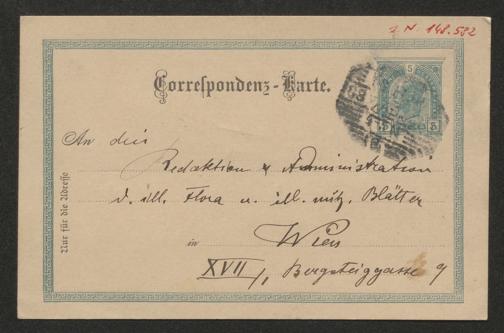 I. N. 148.582
5
Correspondenz-Karte.
5 5
An die
Redaktion & Administration
d. ill. Flora u. ill. nütz. Blätter
Nur für die Adresse
in Wien
XVII/1, Bergsteiggasse 9